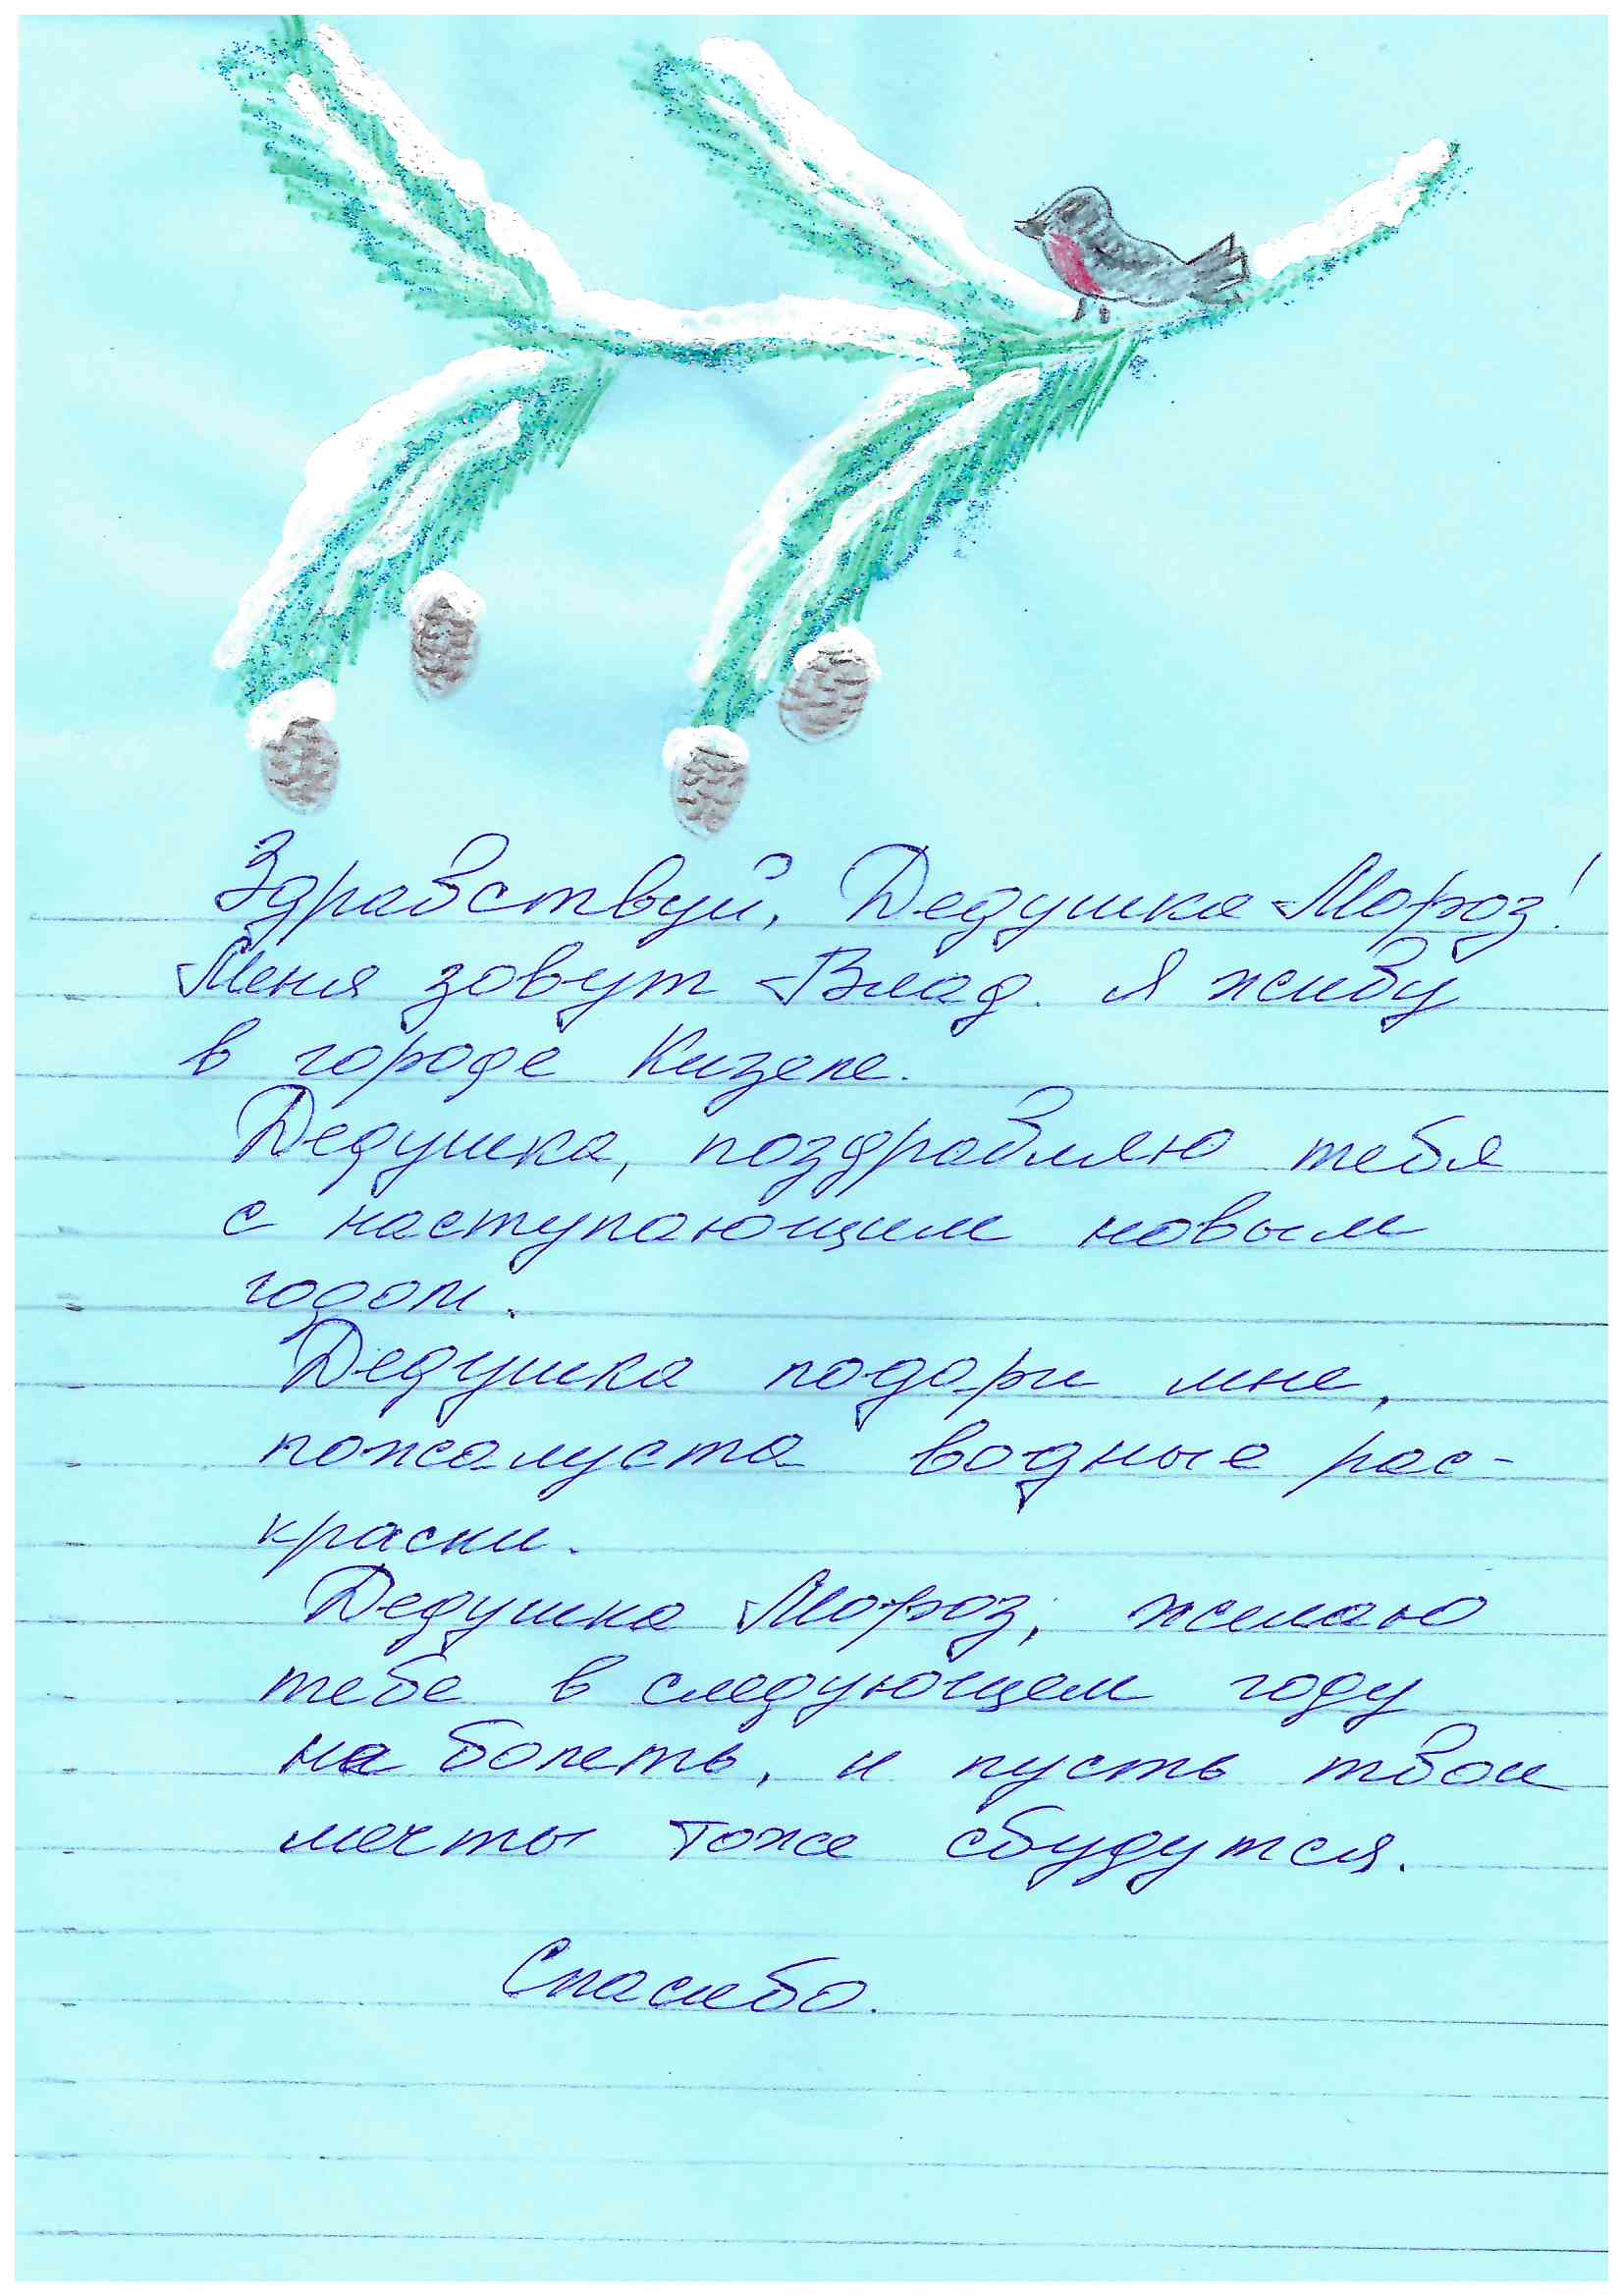 Здравствуй, Дедушка Мороз!
Меня зовут Влад. Я живу
в городе Кизеле.
Дедушка, поздравляю тебя
с наступающим новым
годом.
Дедушка подари мне,
пожалуста водные рас-
краски.
Дедушка Мороз, желаю
тебе в следующем году
не болеть, и пусть твои
мечты тоже сбудутся.
Спасибо.